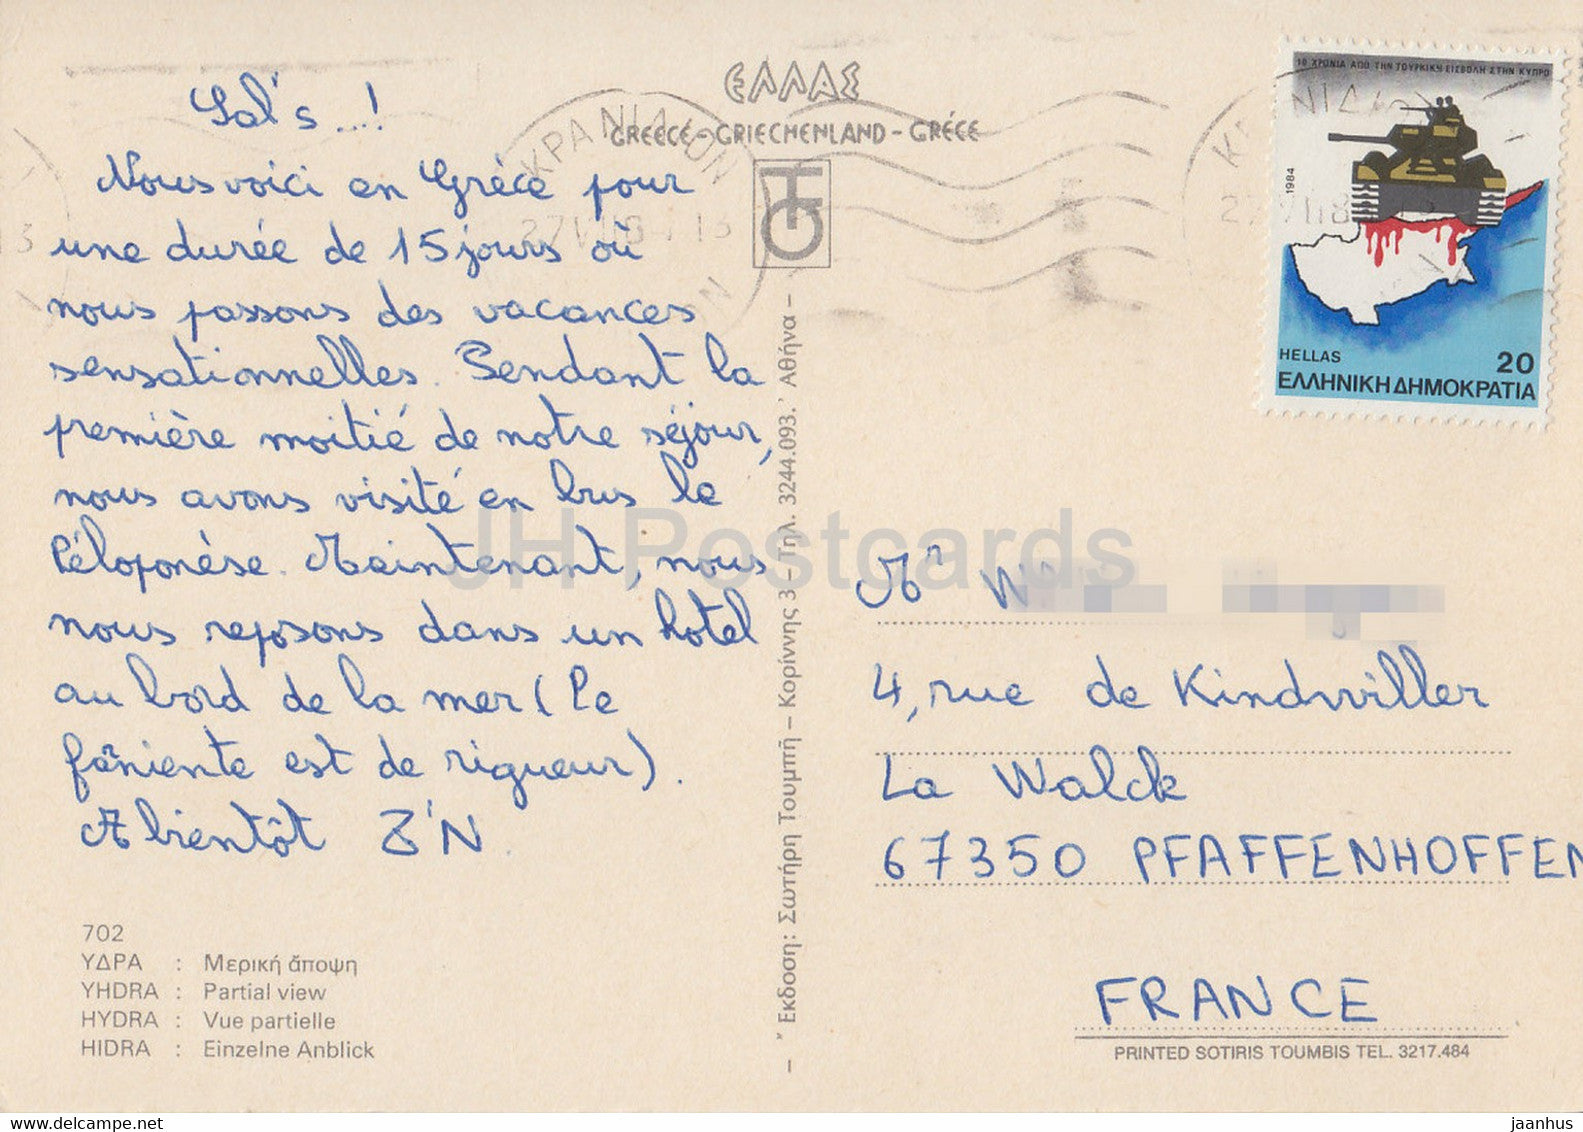 Sal's ...!
Nous voici en Grèce pour
une durée de 15 jours où
nous passons des vacances
sensationnelles. Pendant la
première moitié de notre séjour,
nous avons visité en bus le
Péloponèse. Maintenant, nous
nous reposons dans un hotel
au bord de la mer (Le
farniente est de rigueur).
A bientôt
702
ΥΔΡΑ : Μερική ἄποψη
YHDRA : Partial view
HYDRA : Vue partielle
HIDRA : Einzelne Anblick
ΕΛΛΑΣ
GREECE - GRIECHENLAND - GRÉCE
ΚΡΑΝΙΔΙΟΝ
Ἔκδοση: Σωτήρη Τουμπῆ – Κορίννης 3 – Τηλ. 3244.093. Ἀθήνα –
10 ΧΡΟΝΙΑ ΑΠΟ ΤΗΝ ΤΟΥΡΚΙΚΗ ΕΙΣΒΟΛΗ ΣΤΗΝ ΚΥΠΡΟ
1984
HELLAS 20
ΕΛΛΗΝΙΚΗ ΔΗΜΟΚΡΑΤΙΑ
JH Postcards
Mr W
4, rue de Kindwiller
La Walck
67350 PFAFFENHOFFEN
FRANCE
PRINTED SOTIRIS TOUMBIS TEL. 3217.484
delcampe.net
jaanhus